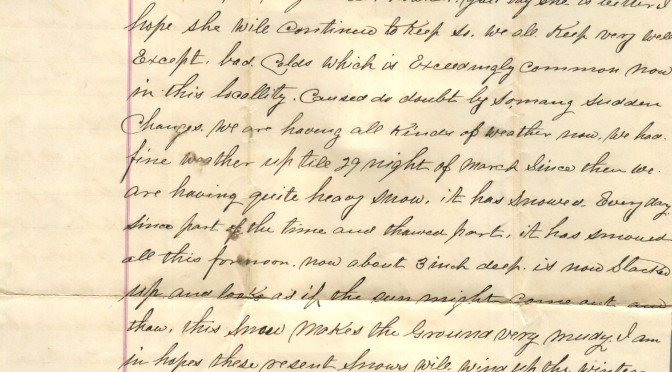 you say she is better I
hope she will continue to Keep so. we all Keep very well
Except. bad Colds which is Exceedingly common now
in this locallity. Caused do doubt by somany sudden
Changes. we are having all Kinds of weather now. we had
fine weather up till 29 night of March Since then we
are having quite heavy snow, it has snowed Every day
since part of the time and thawed part, it has snowed
all this forenoon. now about 3 inch deep. is now Slacked
up and looks as if the sun might come out and
thaw, this Snow Makes the Ground very mudy. I am
in hopes these resent Snows will wind up the winter